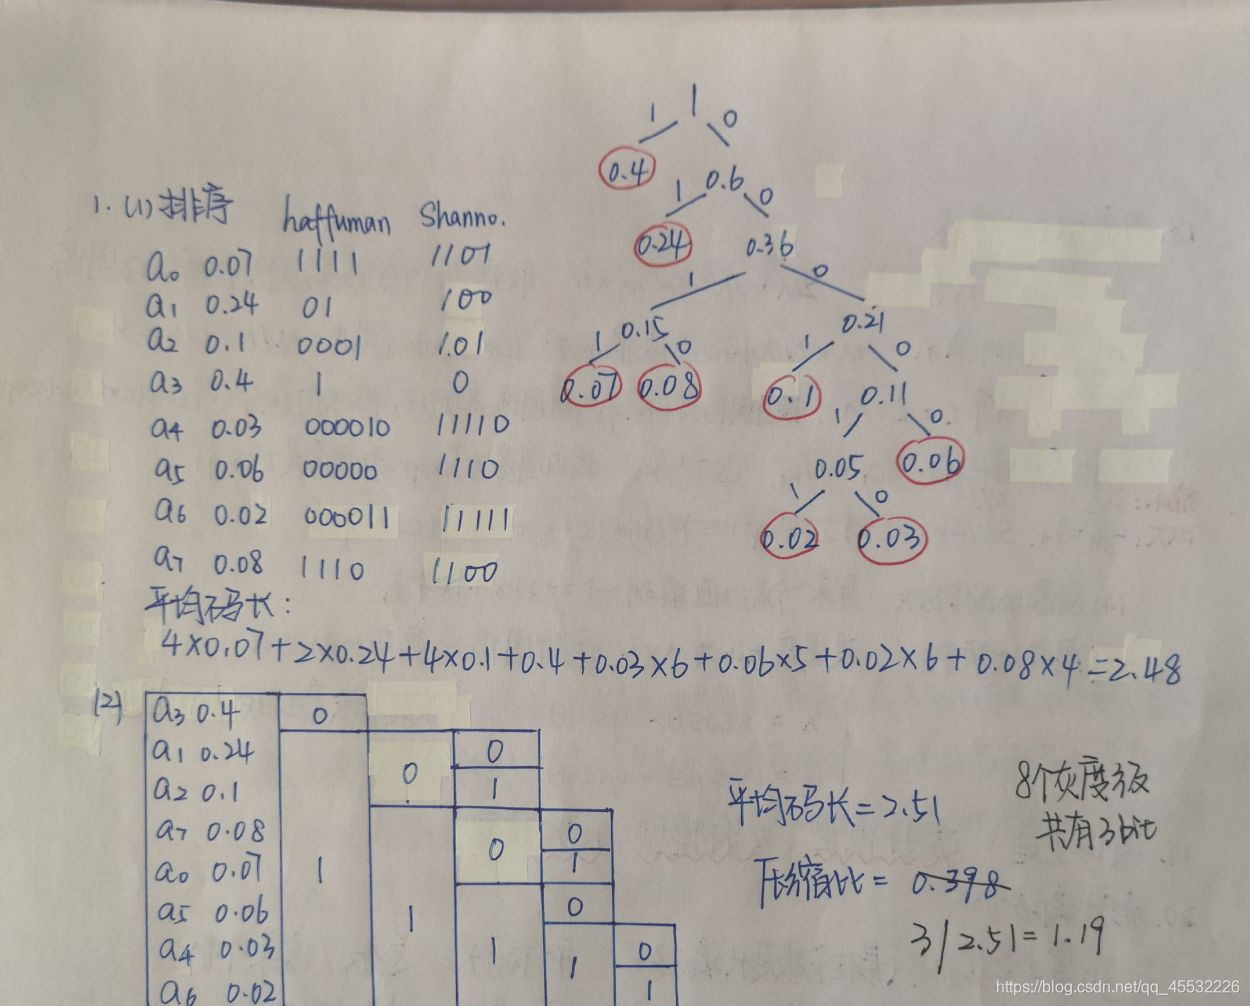 1
1 0
0.4 0.6
1 0
0.24 0.36
1 0
0.15 0.21
1 0 1 0
0.07 0.08 0.1 0.11
1 0.
0.05 0.06
1 0
0.02 0.03
1. (1) 排序 haffuman Shanno.
a0 0.07 1111 1101
a1 0.24 01 100
a2 0.1 0001 101
a3 0.4 1 0
a4 0.03 000010 11110
a5 0.06 00000 1110
a6 0.02 000011 11111
a7 0.08 1110 1100
平均码长:
4×0.07+2×0.24+4×0.1+0.4+0.03×6+0.06×5+0.02×6+0.08×4=2.48
(2) a3 0.4 0
a1 0.24 0 0
a2 0.1 1
a7 0.08 0 0
a0 0.07 1 1
a5 0.06 1 0
a4 0.03 1 1 0
a6 0.02 1
平均码长=2.51
压缩比= 0.398
3/2.51=1.19
8个灰度级
共有3bit
https://blog.csdn.net/qq_45532226